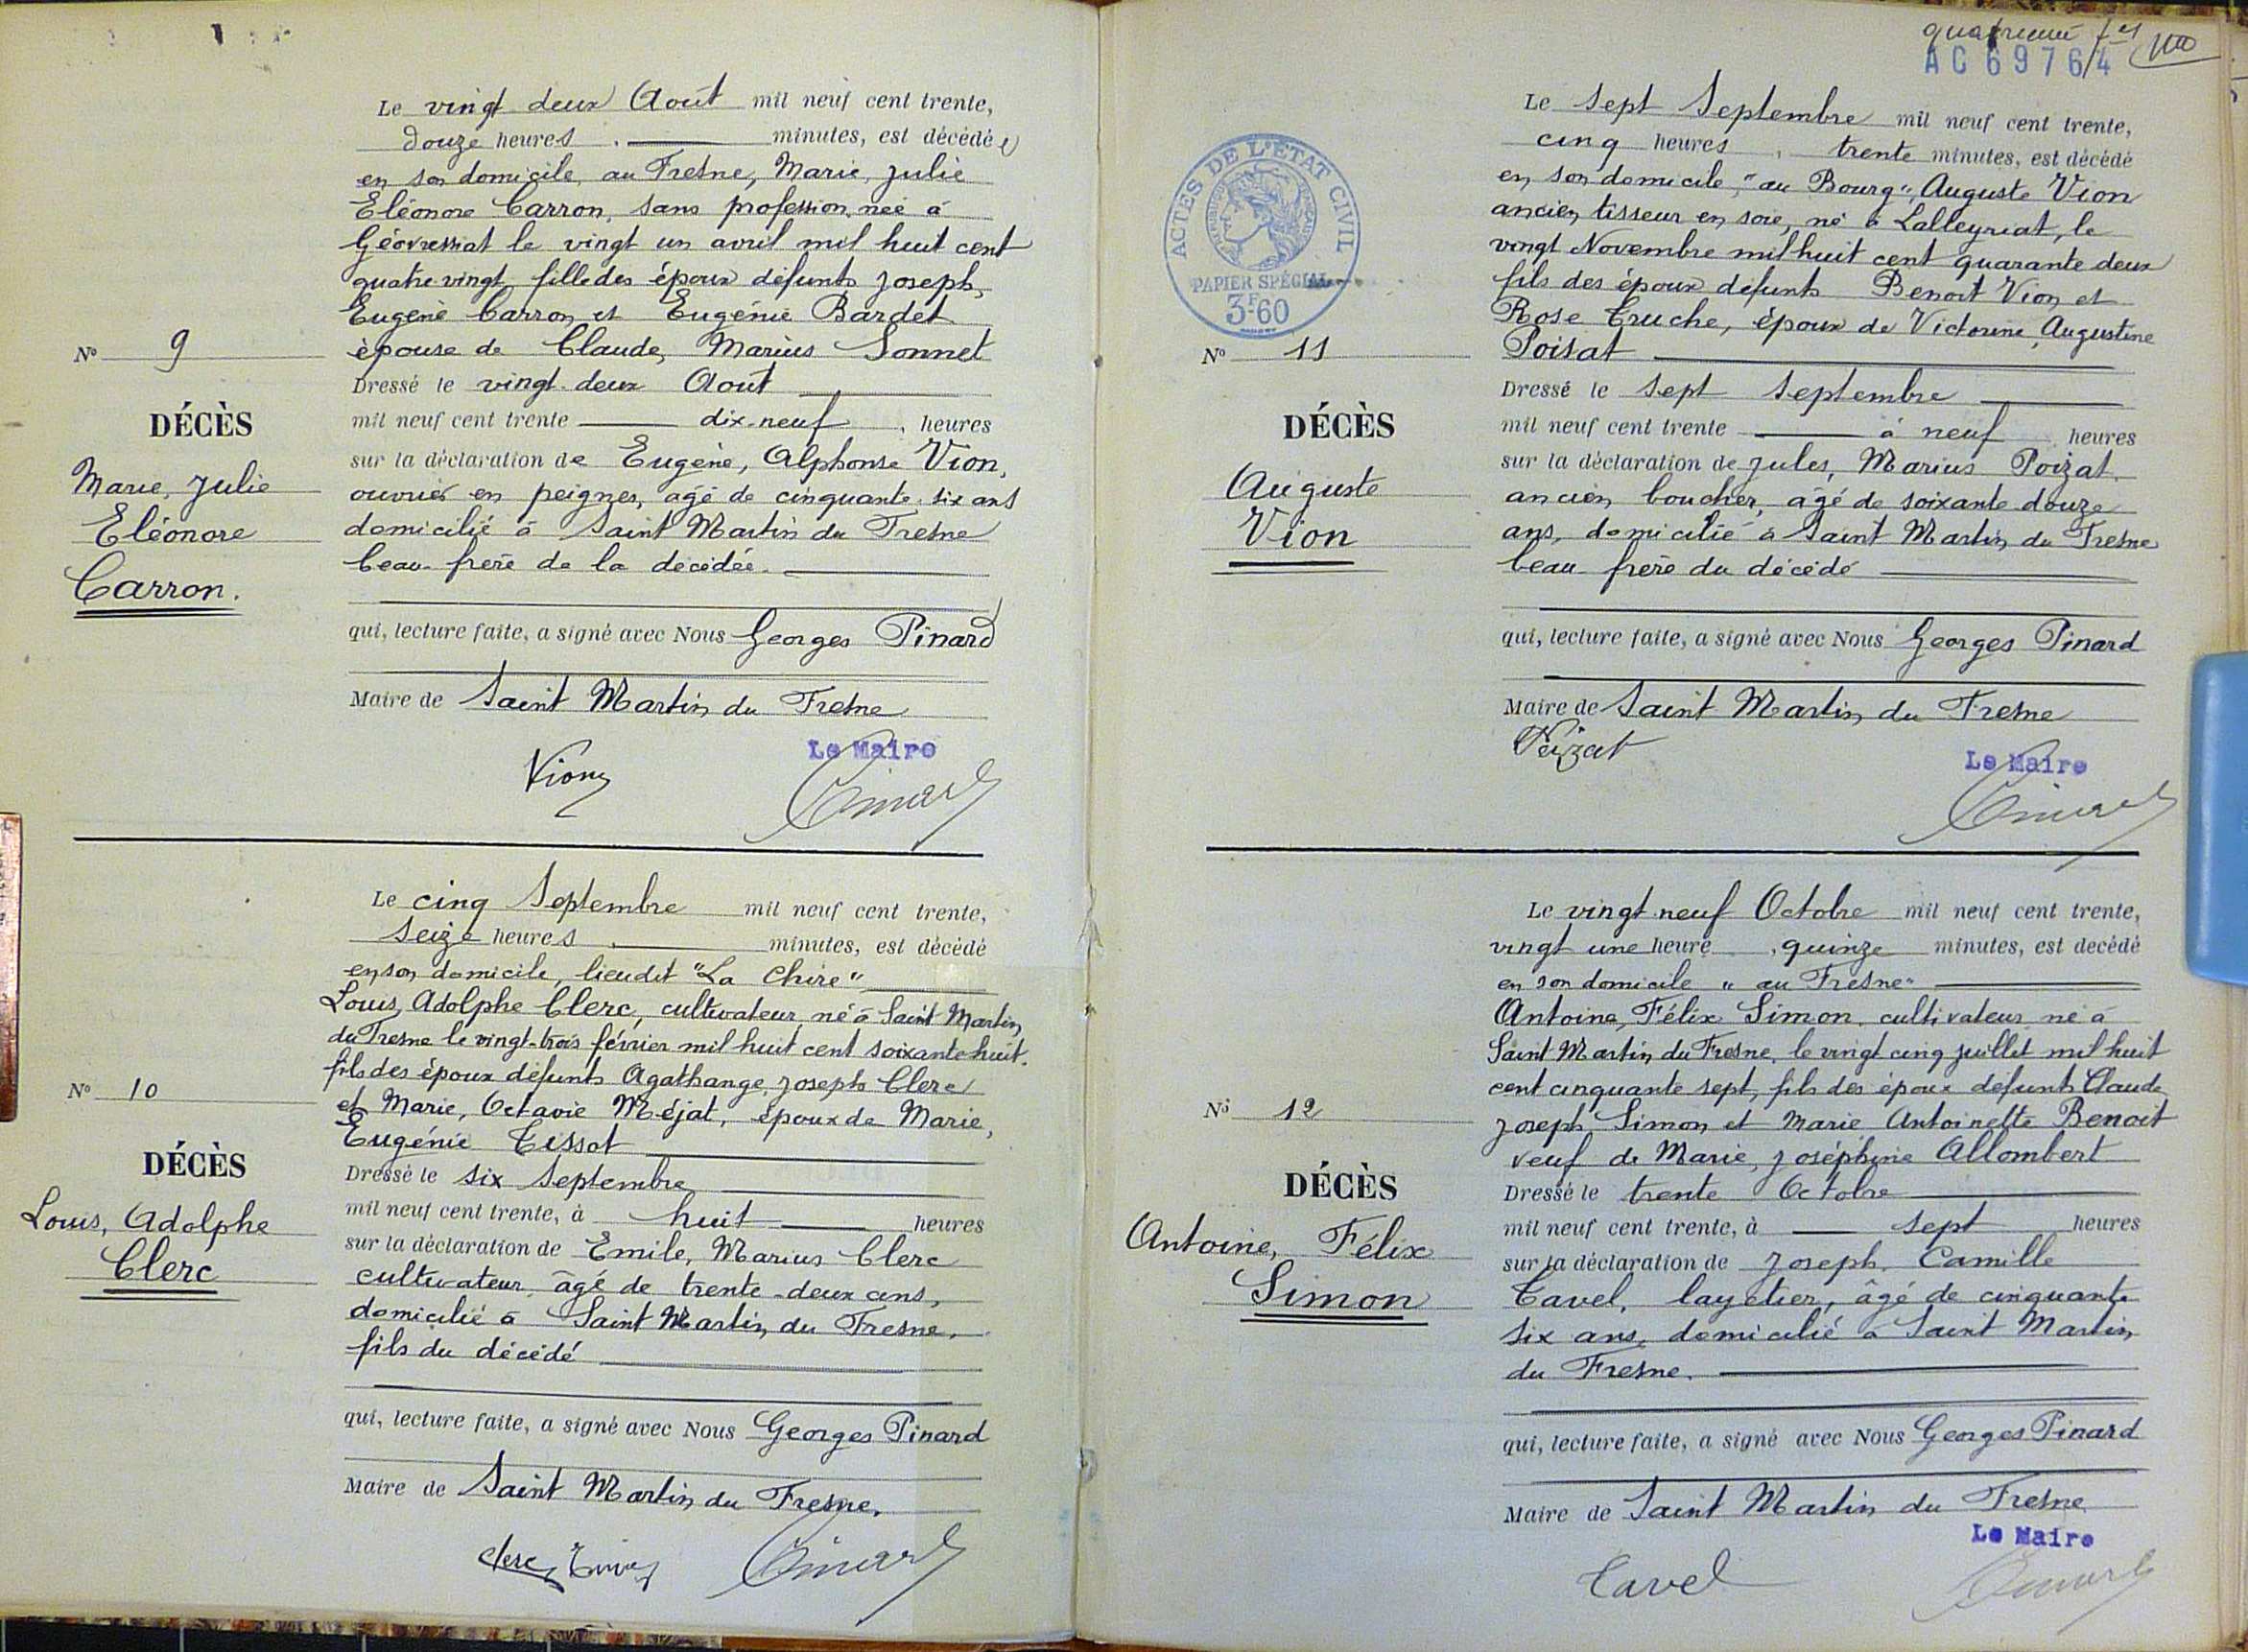 Le vingt deux Août mil neuf cent trente,
douze heures minutes, est décédée
en son domicile, au Fresne, Marie, Julie
Eléonore Carron, sans profession, née à
Géovressiat le vingt un avril mil huit cent
quatre vingt, fille des époux défunts Joseph,
Eugène Carron et Eugénie Bardet
épouse de Claude, Marius Sonnet
Dressé le vingt-deux Août
mil neuf cent trente dix-neuf heures
sur la déclaration de Eugène, Alphonse Vion,
ouvrier en peignes, âgé de cinquante-six ans
domicilié à Saint Martin du Fresne
beau-frère de la décédée.
qui, lecture faite, a signé avec Nous Georges Pinard
Maire de Saint Martin du Fresne
Le Maire
Vion
Pinard
N° 9
DÉCÈS
Marie, Julie
Eléonore
Carron.
Le cinq Septembre mil neuf cent trente,
seize heures minutes, est décédé
en son domicile, lieudit "La Chire"
Louis, Adolphe Clerc, cultivateur, né à Saint Martin
du Fresne le vingt-trois février mil huit cent soixante huit.
fils des époux défunts Agathange, Joseph Clerc
et Marie, Octavie Méjat, époux de Marie,
Eugénie Tissot
Dressé le six Septembre
mil neuf cent trente, à huit heures
sur la déclaration de Emile, Marius Clerc
cultivateur, âgé de trente-deux ans,
domicilié à Saint Martin du Fresne,
fils du décédé
qui, lecture faite, a signé avec Nous Georges Pinard
Maire de Saint Martin du Fresne.
Clerc
Pinard
N° 10
DÉCÈS
Louis, Adolphe
Clerc
AC 69764
ACTES DE L'ÉTAT CIVIL
RÉPUBLIQUE FRANÇAISE
PAPIER SPÉCIAL
3F60
Le sept Septembre mil neuf cent trente,
cinq heures, trente minutes, est décédé
en son domicile, "au Bourg", Auguste Vion
ancien tisseur en soie, né à Lalleyriat, le
vingt Novembre mil huit cent quarante deux
fils des époux défunts Benoit Vion et
Rose Truche, époux de Victorine, Augustine
Poisat
Dressé le sept septembre
mil neuf cent trente à neuf heures
sur la déclaration de Jules, Marius Poizat,
ancien boucher, âgé de soixante douze
ans, domicilié à Saint Martin du Fresne
beau-frère du décédé
qui, lecture faite, a signé avec Nous Georges Pinard
Maire de Saint Martin du Fresne
Poizat
Le Maire
Pinard
N° 11
DÉCÈS
Auguste
Vion
Le vingt-neuf Octobre mil neuf cent trente,
vingt une heure, quinze minutes, est décédé
en son domicile "au Fresne"
Antoine, Félix Simon, cultivateur, né à
Saint Martin du Fresne, le vingt cinq juillet mil huit
cent cinquante sept, fils des époux défunts Claude
Joseph Simon et Marie Antoinette Benoit
veuf de Marie, Joséphine Allombert
Dressé le trente Octobre
mil neuf cent trente, à sept heures
sur la déclaration de Joseph, Camille
Tavel, layetier, âgé de cinquante
six ans, domicilié à Saint Martin
du Fresne.
qui, lecture faite, a signé avec Nous Georges Pinard
Maire de Saint Martin du Fresne
Le Maire
Tavel
Pinard
N° 12
DÉCÈS
Antoine, Félix
Simon